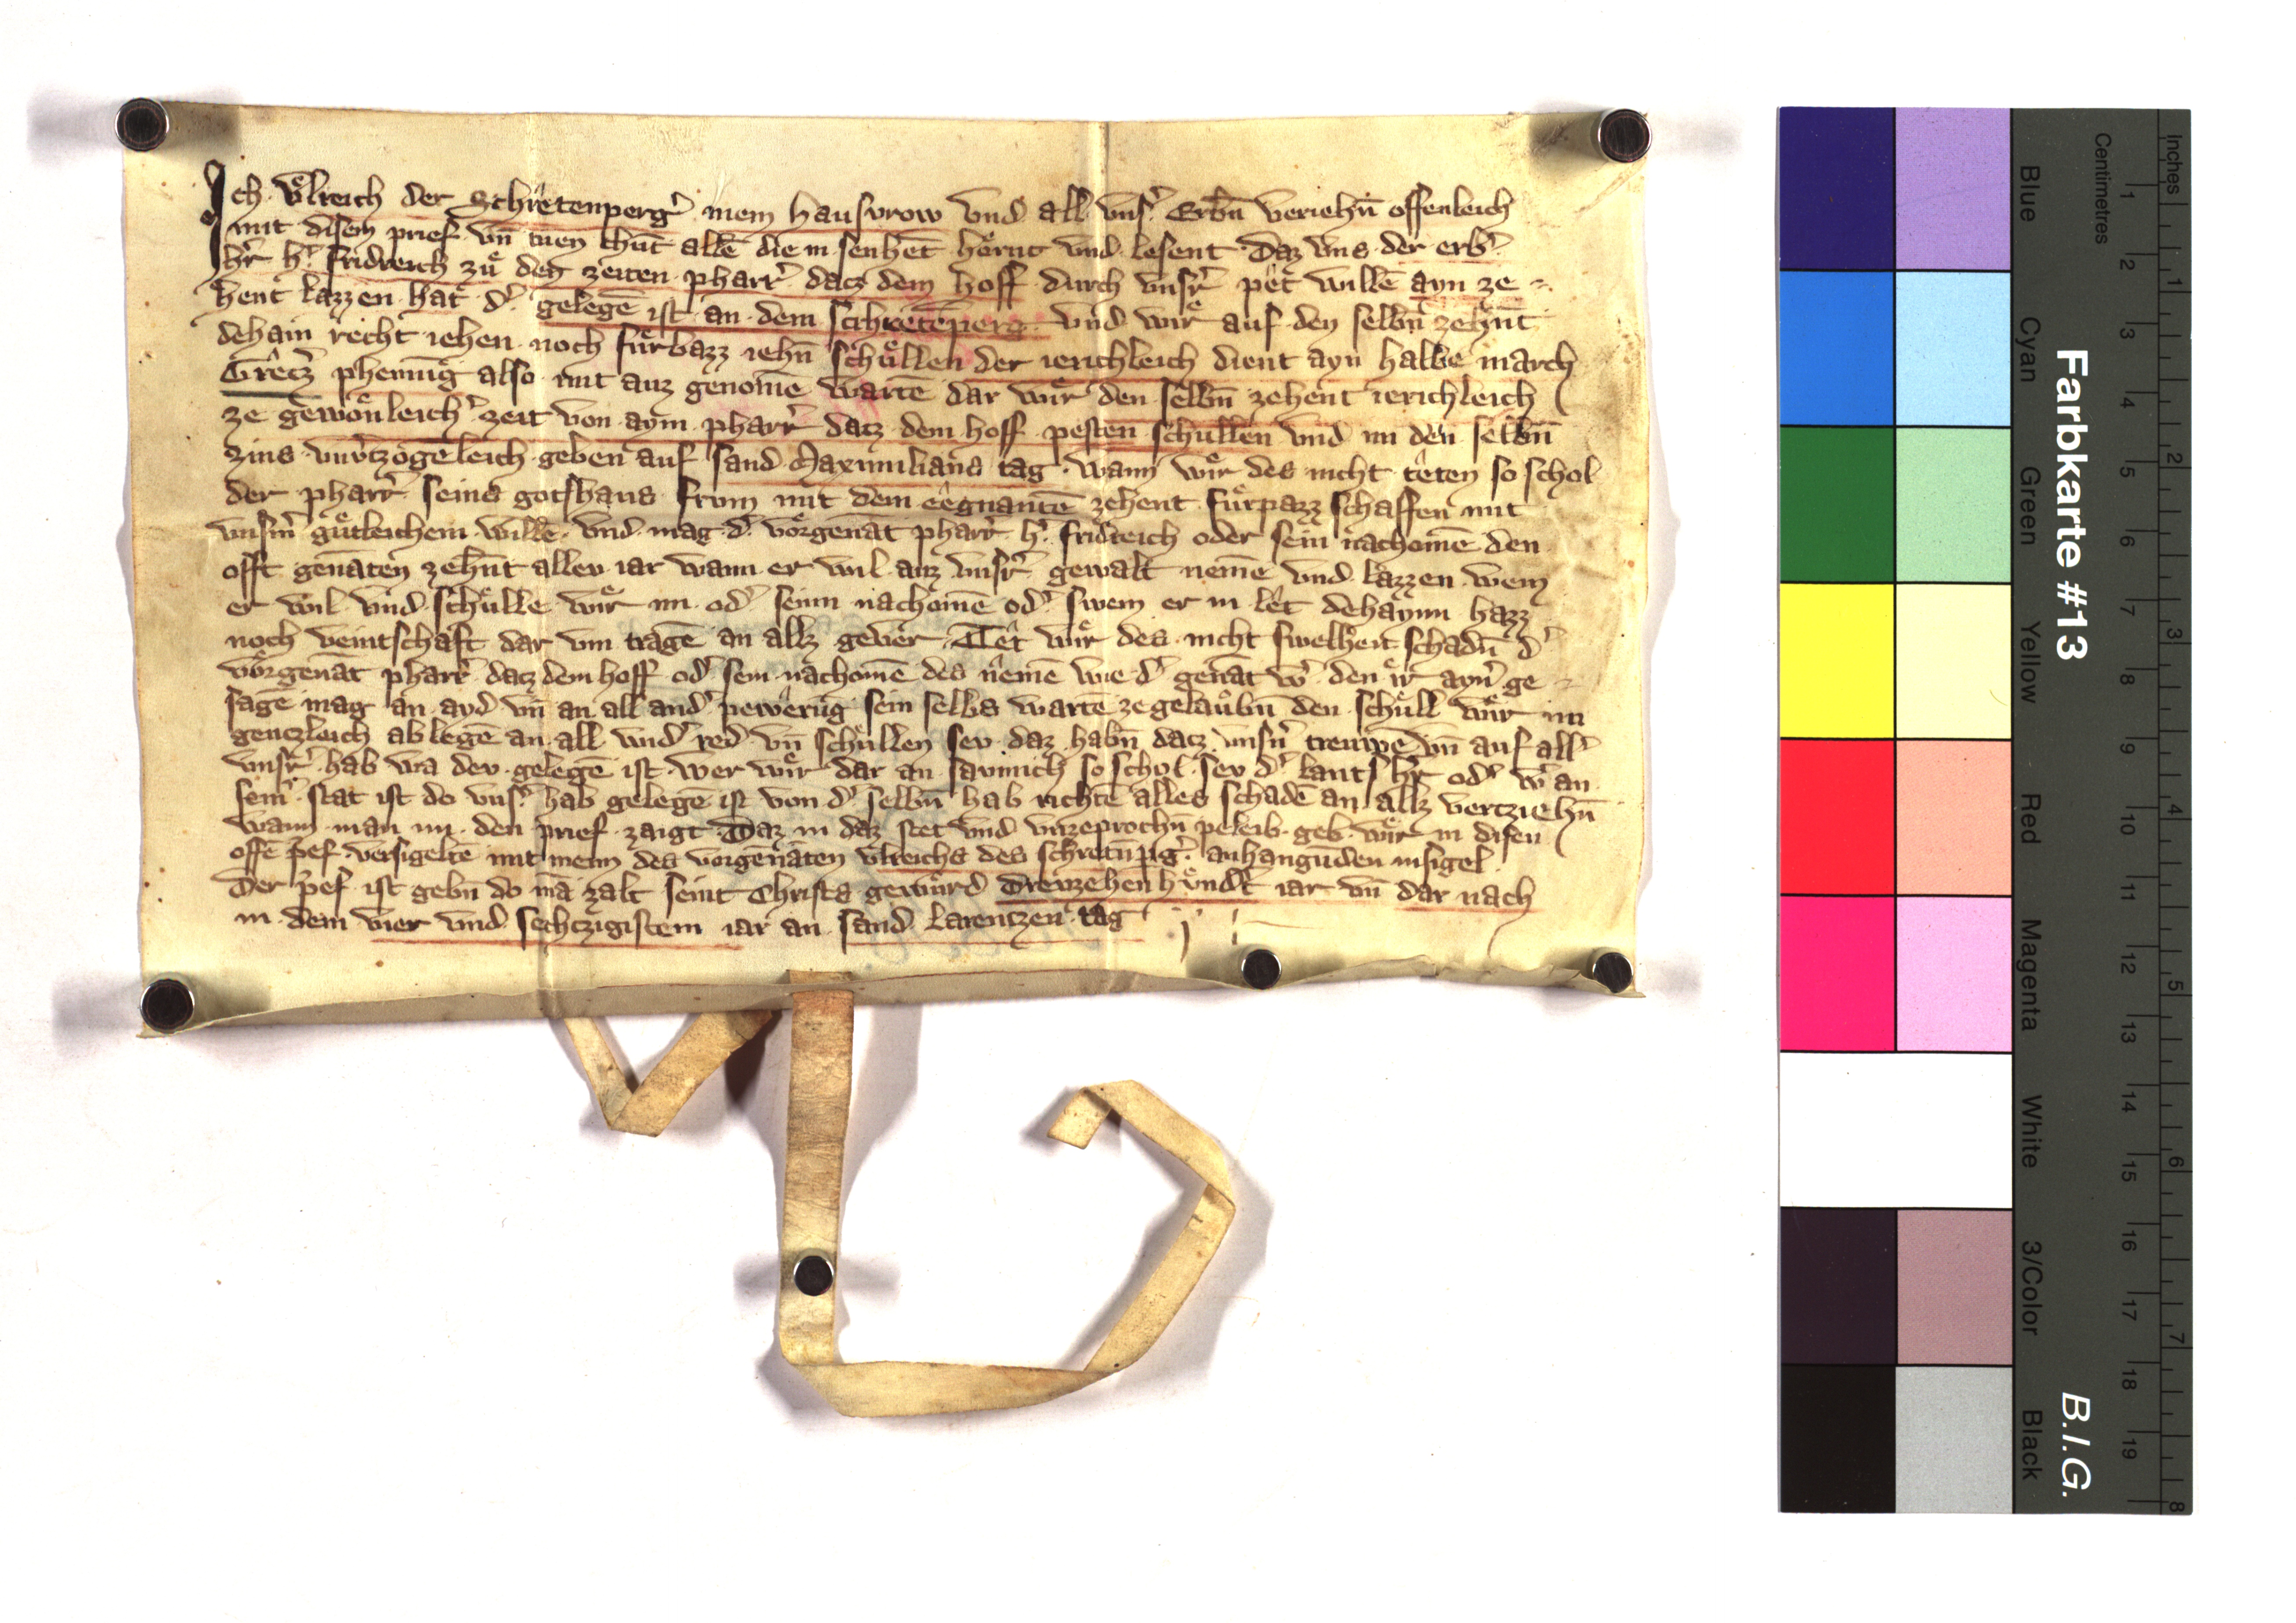 Ich vͦlreich der Schretenperg̛ mein hausvrow vnd all vns̛ Erbn̄ veriehn̄ offenleich
mit disem prief vn̄ tuen chūt allē die in sehent hoͤrnt vnd lesent Daz vns der erb̛
h̛r h̛ fridreich zuͦ den zeiten pharr̛ datz dem hoff durch vnsr̛ pet willē ayn ze
hent lazzen hat d̛ gelegē ist an dem schretēperg vnd wir auf den selbn̄ zehn̄t
dehain recht iehen noch fuͤrbazz iehn̄ schuͤllen der ierichleich dient ayn halbe march
Gretz̛ phenīg also mit auz genomē wartē dar wir den selbn̄ zehent ierichleich
ze gewoͤnleich̛ zeit von aym pharr̛ datz dem hoff pesten schullen vnd im den selbn̄
zins vnv̛tzogēleich geben auf sand Maximilians tag wann wir des nicht teten so schol
der pharr̛ seins gotshaus frum mit dem eegnantē zehent fuͤrpazz schaffen mit
vnsm̄ guͤtleichem willē vnd mag d̛ vorgenāt pharr̛ h̛ fridreich oder sein nachomē den
offt genāten zehn̄t allev iar wann er wil auz vnsr̛ gewalt nemē vnd lazzen wem
er wil vnd schuͤllē wir im od̛ seinn nachomē od̛ swem er in let dehaynn hazz
noch veintschaft dar vm tragē an allz geuer Tet wir des nicht swelhen schadn̄ d̛
vorgenāt pharr̛ datz dem hoff od̛ sein nachomē des nemē wie d̛ genāt w̛ den ir ayn̛ ge
sagē mag an ayd vn̄ an all and̛ pewerūg sein selbs wartē ze gelaubn̄ den schuͤll wir im
gentzleich ab legē an all wid̛ red vn̄ schuͤllen sev daz habn̄ datz vnsn̄ trewē vn̄ auf all̛
vnsr̛ hab wa dev gelegē ist wer wir dar an saumich so schol sev d̛ lants h̛r od̛ w̛ an
sein̛ stat ist do vns̛ hab gelegē ist von d̛ selbn̄ hab richtē alles schadē an allz vertziehn̄
wann man im den prief zaigt Daz in daz stet vnd vnzeprochn̄ peleib geb wir in disen
offē p̛ef versigeltē mit meim des vorgenāten vlreichs des schretn̄pg̛ anhangūden insigel
Der p̛ef ist gebn̄ do mā zalt seint Christs gewuͤrd Drewzehen hvnd̛t iar vn̄ dar nach
in dem vier vnd sechtzigistem iar an sand Larentzen tag
Farbkarte #13
B.I.G.
Inches 1 2 3 4 5 6 7 8
Centimetres 1 2 3 4 5 6 7 8 9 10 11 12 13 14 15 16 17 18 19
Blue Cyan Green Yellow Red Magenta White 3/Color Black